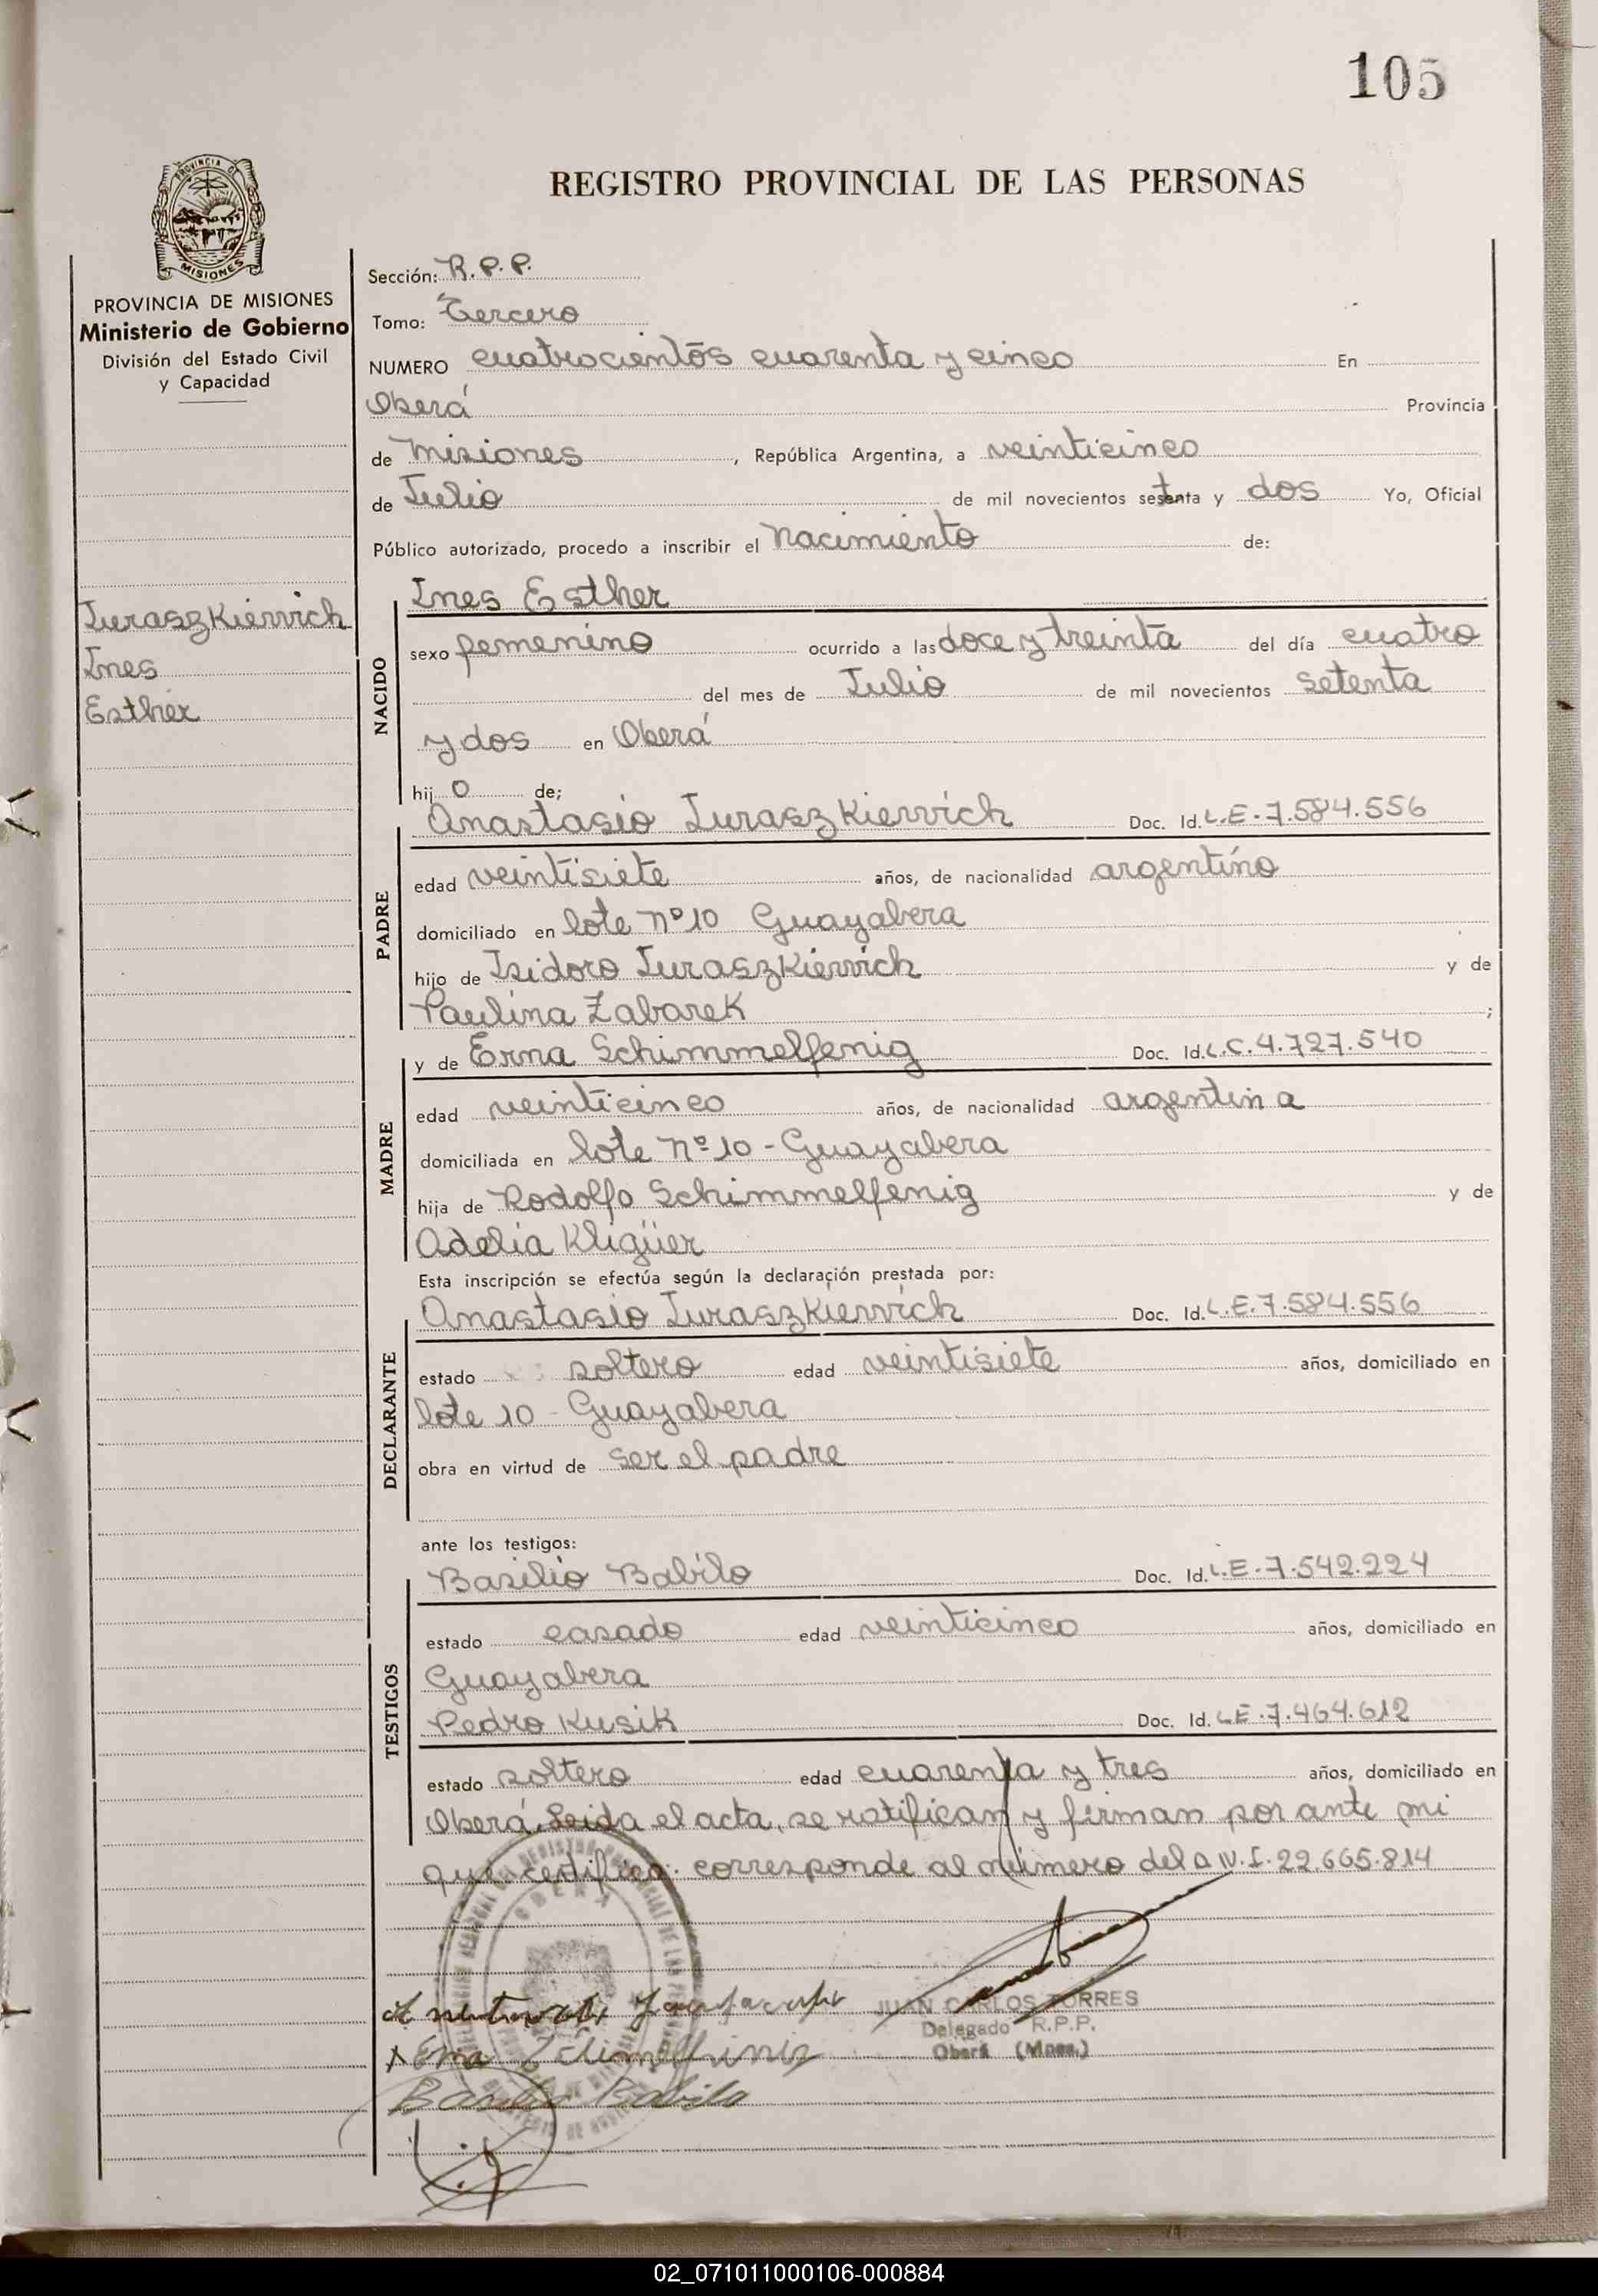 105
REGISTRO PROVINCIAL DE LAS PERSONAS
PROVINCIA DE MISIONES
Ministerio de Gobierno
División del Estado Civil
y Capacidad
Juraszkievvich
Ines
Esther
Sección: R.P.P.
Tomo: Tercero
NUMERO cuatrocientos cuarenta y cinco En
Oberá Provincia
de Misiones, República Argentina, a veinticinco
de Julio de mil novecientos setenta y dos Yo, Oficial
Público autorizado, procedo a inscribir el nacimiento de:
NACIDO
Ines Esther
sexo femenino ocurrido a las doce y treinta del día cuatro
del mes de Julio de mil novecientos setenta
y dos en Oberá
hijo de;
PADRE
Anastasio Juraszkievvich Doc. Id. L.E.7.584.556
edad veintisiete años, de nacionalidad argentino
domiciliado en lote nº10 Guayabera
hijo de Isidoro Juraszkievvich y de
Paulina Zabarek ;
MADRE
y de Erma Schimmelfenig Doc. Id. L.C.4.727.540
edad veinticinco años, de nacionalidad argentina
domiciliada en lote nº10-Guayabera
hija de Rodolfo Schimmelfenig y de
Adelia Kligüer
Esta inscripción se efectúa según la declaración prestada por:
DECLARANTE
Anastasio Juraszkievvich Doc. Id. L.E.7.584.556
estado soltero edad veintisiete años, domiciliado en
lote 10-Guayabera
obra en virtud de ser el padre
ante los testigos:
TESTIGOS
Basilio Babilo Doc. Id. L.E.7.542.224
estado casado edad veinticinco años, domiciliado en
Guayabera
Pedro Kusik Doc. Id. L.E.7.464.612
estado soltero edad cuarenta y tres años, domiciliado en
Oberá. Leida el acta, se ratifican y firman por ante mi
que certifico: corresponde al número del D.N.I.22.665.814
JUAN CARLOS TORRES
Delegado R.P.P.
Oberá (Mnes.)
02_071011000106-000884